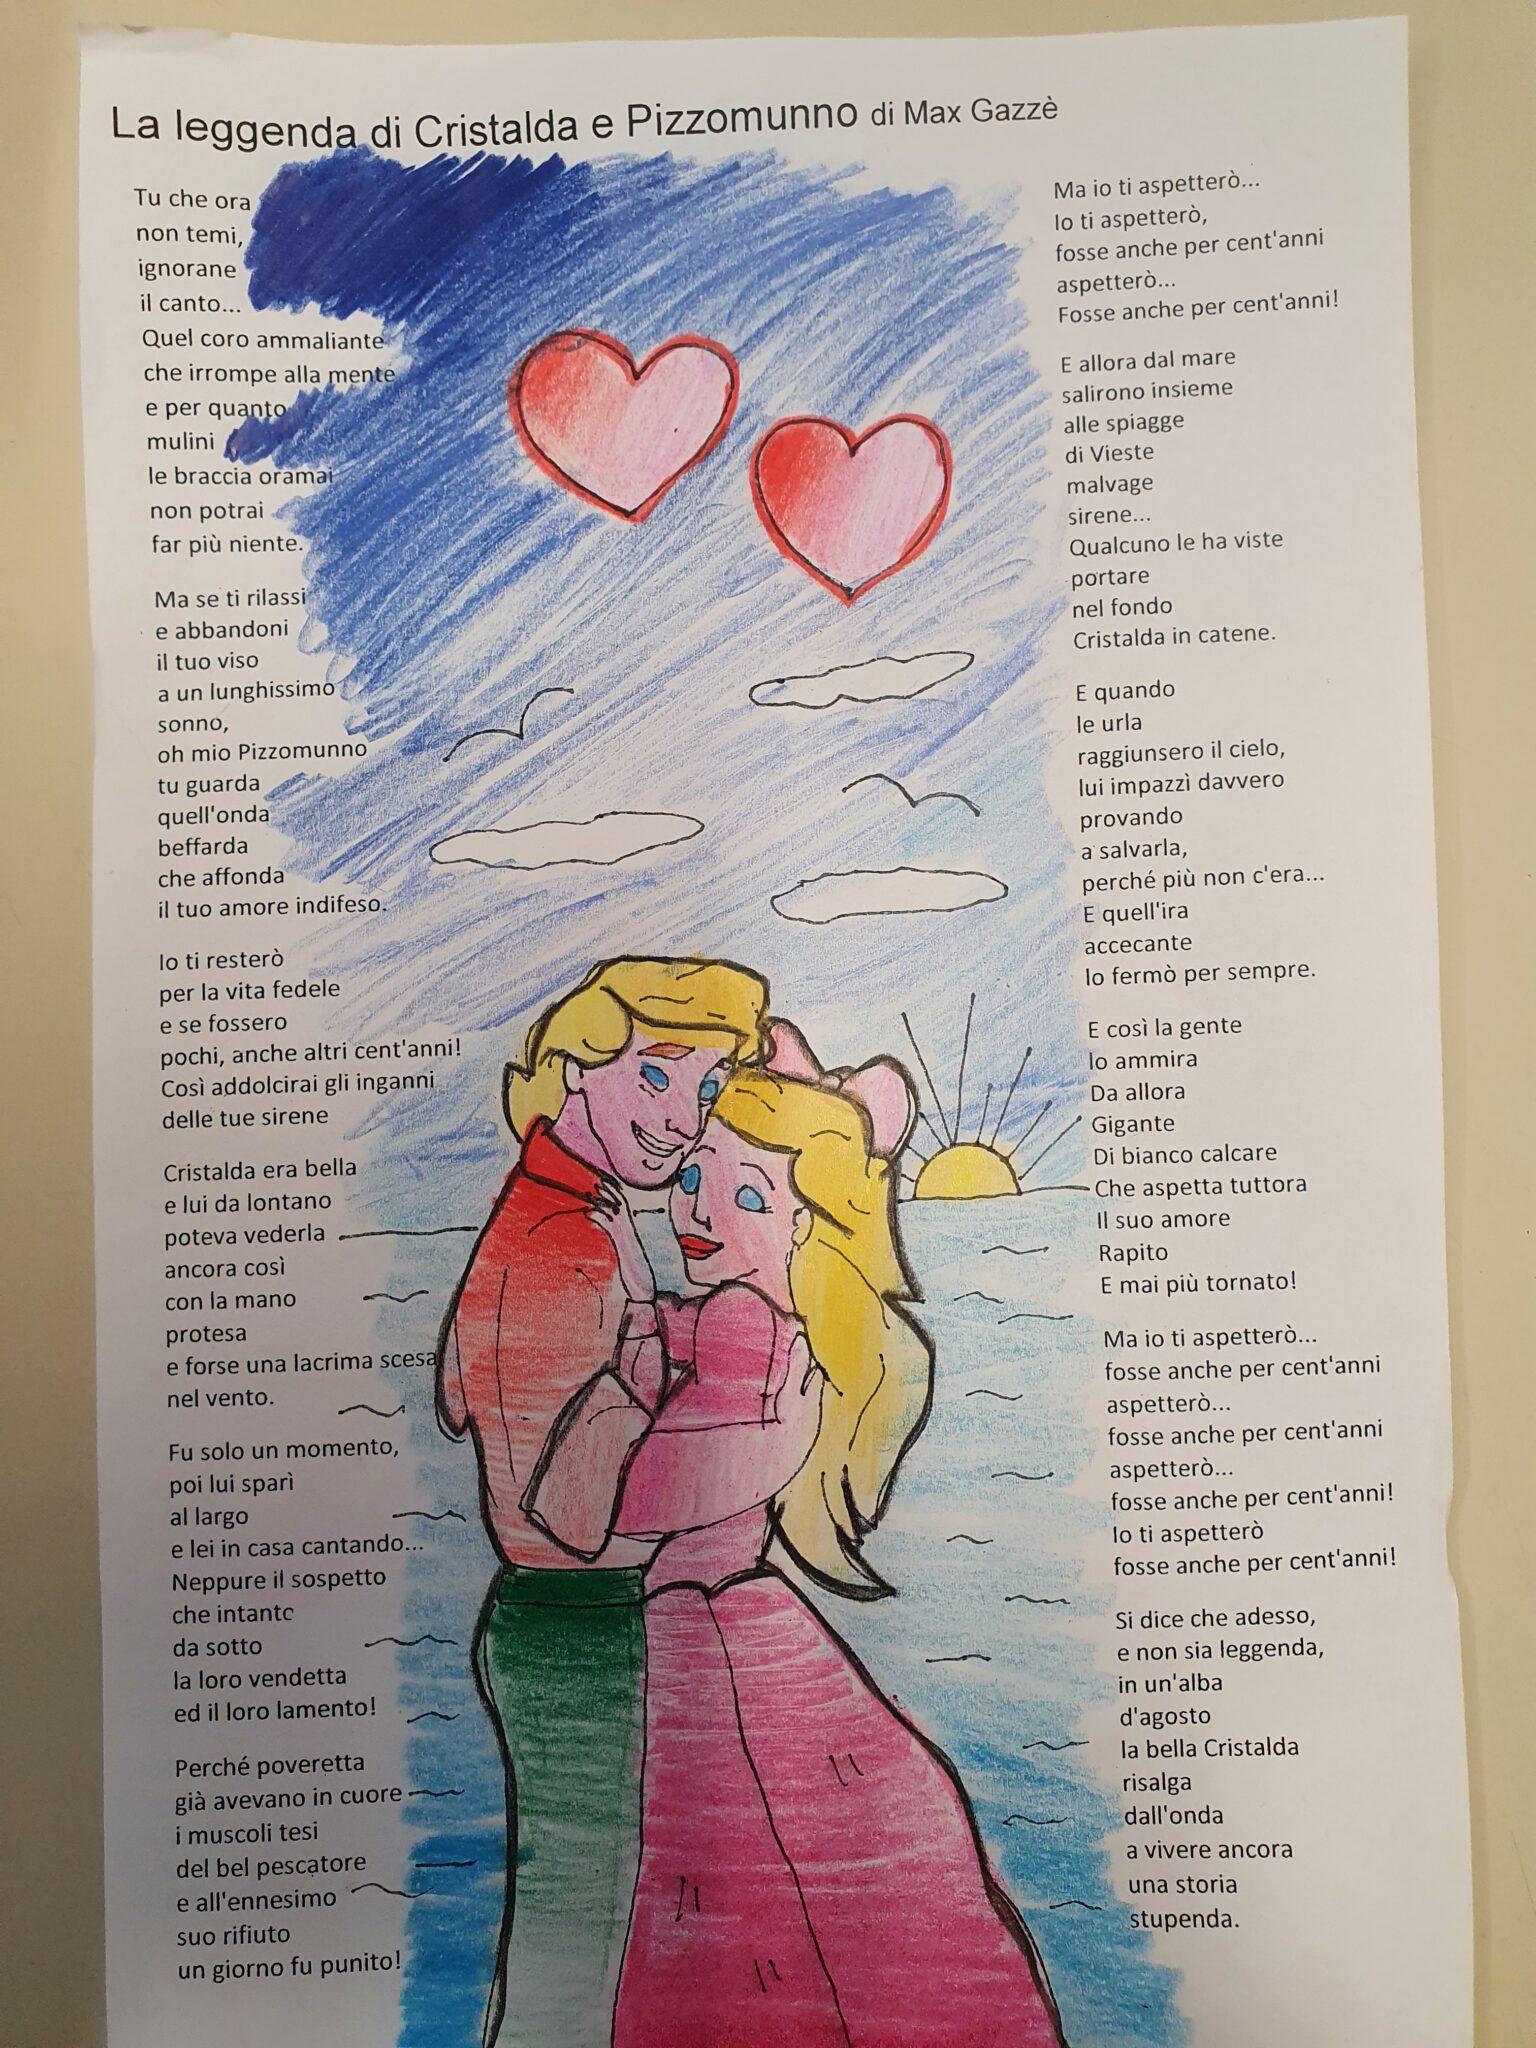 La leggenda di Cristalda e Pizzomunno di Max Gazzè
Tu che ora
non temi,
ignorane
il canto...
Quel coro ammaliante
che irrompe alla mente
e per quanto
mulini
le braccia oramai
non potrai
far più niente.
Ma se ti rilassi
e abbandoni
il tuo viso
a un lunghissimo
sonno,
oh mio Pizzomunno
tu guarda
quell'onda
beffarda
che affonda
il tuo amore indifeso.
Io ti resterò
per la vita fedele
e se fossero
pochi, anche altri cent'anni!
Così addolcirai gli inganni
delle tue sirene
Cristalda era bella
e lui da lontano
poteva vederla
ancora così
con la mano
protesa
e forse una lacrima scesa
nel vento.
Fu solo un momento,
poi lui sparì
al largo
e lei in casa cantando...
Neppure il sospetto
che intanto
da sotto
la loro vendetta
ed il loro lamento!
Perché poveretta
già avevano in cuore
i muscoli tesi
del bel pescatore
e all'ennesimo
suo rifiuto
un giorno fu punito!
Ma io ti aspetterò...
Io ti aspetterò,
fosse anche per cent'anni
aspetterò...
Fosse anche per cent'anni!
E allora dal mare
salirono insieme
alle spiagge
di Vieste
malvage
sirene...
Qualcuno le ha viste
portare
nel fondo
Cristalda in catene.
E quando
le urla
raggiunsero il cielo,
lui impazzì davvero
provando
a salvarla,
perché più non c'era...
E quell'ira
accecante
lo fermò per sempre.
E così la gente
lo ammira
Da allora
Gigante
Di bianco calcare
Che aspetta tuttora
Il suo amore
Rapito
E mai più tornato!
Ma io ti aspetterò...
fosse anche per cent'anni
aspetterò...
fosse anche per cent'anni
aspetterò...
fosse anche per cent'anni!
Io ti aspetterò
fosse anche per cent'anni!
Si dice che adesso,
e non sia leggenda,
in un'alba
d'agosto
la bella Cristalda
risalga
dall'onda
a vivere ancora
una storia
stupenda.